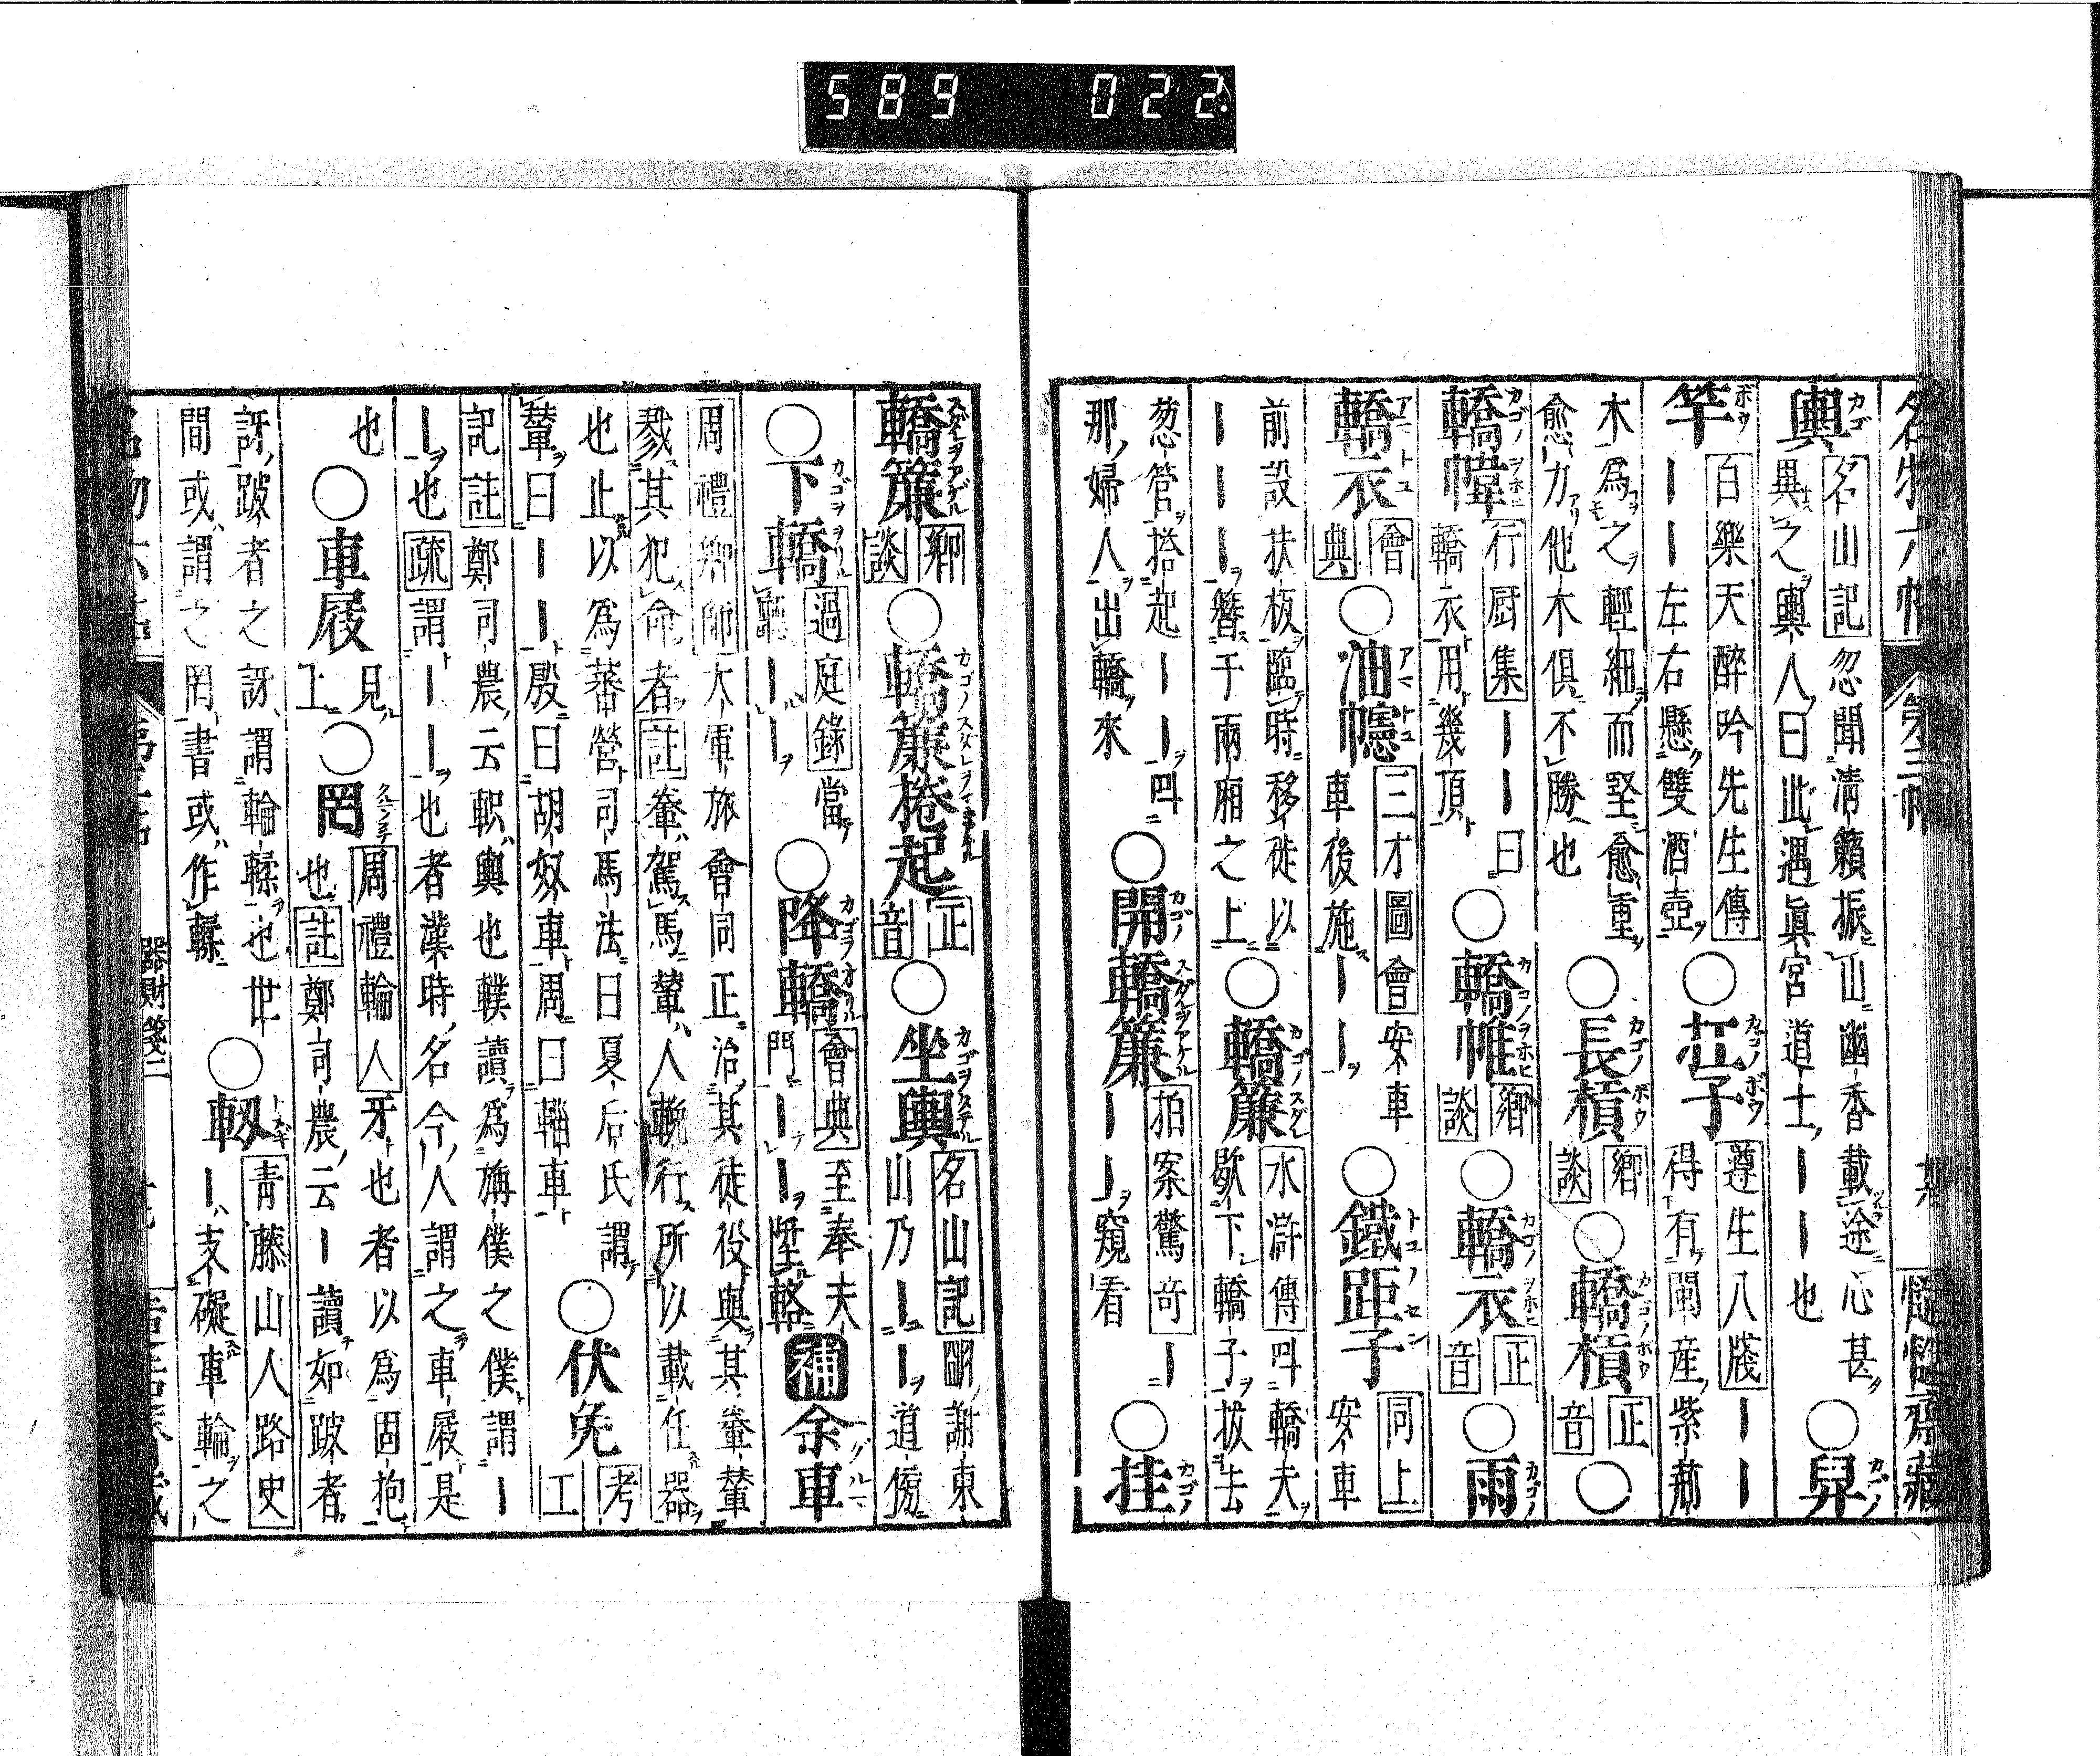 589 022
名物六帖 第三帖 藏
輿 名山記 忽聞清籟振山幽香載途心甚
異之輿人曰此遇眞宮道士ーー也 ○舁
竿 百樂天醉吟先生傳
ーー左右懸雙酒壺 ○杠子 遵生八牋 ーー
得有閩産紫
木爲之輕細而堅愈重
愈力他木俱不勝也 ○長槓 鄉談 ○轎槓 正音 ○
轎幃 行厨集 ーー曰
轎衣用幾頂 ○轎帷 鄉談 ○轎衣 正音 ○雨
轎衣 會典 ○油幰 三才圖會 安車
車後施ーー ○鐵距子 同上 安車
前設扶板臨時移徙以
ーーー簪于兩廂之上 ○轎簾 水滸傳 叫轎夫
歇下轎子拔去
葱管搭起ーー叫
那婦人出轎來 ○開轎簾 拍案驚奇 ー
ーー窺看 ○挂
轎簾 鄉談 ○轎簾捲起 正音 ○坐輿 名山記 明謝東
山乃ーー道傍
○下轎 過庭錄 當
聽ーー ○降轎 會典 至奉天
門ーー陞輅 補 余車
周禮鄉師 大軍旅會同正治其徒役與其輂輦
戮其犯命者 註 輂駕馬輦人輓行所以載任器
也止以爲蕃營司馬法曰夏后氏謂
輦曰ーー殷曰胡奴車周曰輜車 ○伏兔 考工
記註 鄭司農云軹輿也轐讀爲旃僕之僕謂ー
ー也 疏 謂ーーー也者漢時名今人謂之車屐是
也 ○車屐 見上 ○罔 周禮輪人 牙也者以爲固抱
也 註 鄭司農云ー讀如跛者
訝跛者之訝謂輪轑也世
間或謂之罔書或作轑 ○軔 青藤山人路史
ー支礙車輪之
器財箋三